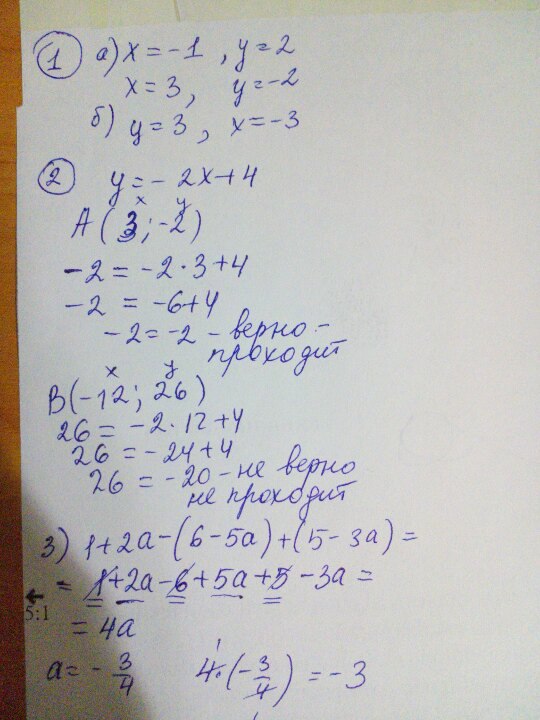 1 а) x = -1 , y = 2
x = 3, y = -2
б) y = 3 , x = -3
2 y = - 2x + 4
x y
A(3; -2)
-2 = -2·3+4
-2 = -6+4
-2 = -2 - верно -
проходит
x y
B(-12; 26)
26 = -2·12+4
26 = -24+4
26 = -20 - не верно
не проходит
3) 1+2a-(6-5a)+(5-3a)=
= 1+2a-6+5a+5-3a=
5:1
= 4a
a = - 3/4 4·(-3/4) = -3